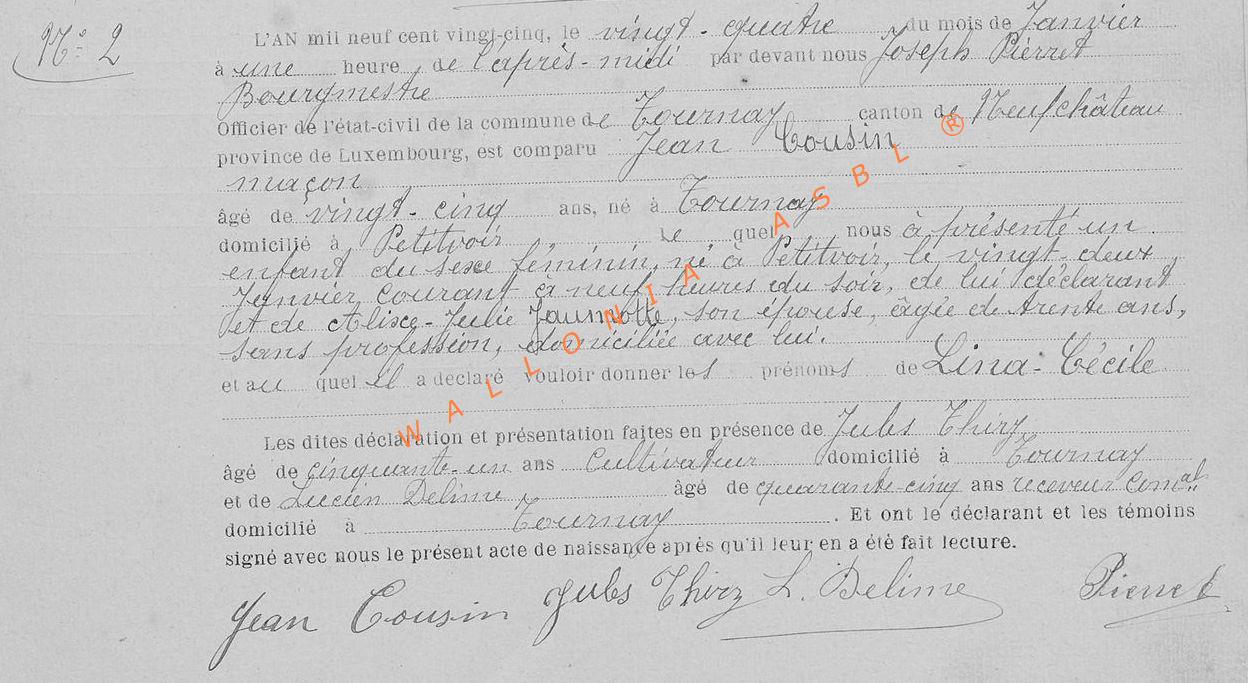 N° 2
L'AN mil neuf cent vingt-cinq, le vingt-quatre du mois de Janvier
à une heure de l'après-midi par devant nous Joseph Pierret
Bourgmestre
Officier de l'état-civil de la commune de Tournay canton de Neufchâteau
province de Luxembourg, est comparu Jean Cousin
maçon
âgé de vingt-cinq ans, né à Tournay
domicilié à Petitvoir le quel nous à présenté un
enfant du sexe féminin, né à Petitvoir, le vingt-deux
Janvier courant à neuf heures du soir, de lui déclarant
et de Alixe-Julie Jaumotte, son épouse, âgée de trente ans,
sans profession, domiciliée avec lui.
et au quel il a declaré vouloir donner les prénoms de Lina-Cécile
Les dites déclaration et présentation faites en présence de Jules Thiry
âgé de cinquante-un ans cultivateur domicilié à Tournay
et de Lucien Delime âgé de quarante-cinq ans receveur Comal
domicilié à Tournay. Et ont le déclarant et les témoins
signé avec nous le présent acte de naissance après qu'il leur en a été fait lecture.
Jean Cousin Jules Thiry L. Delime Pierret
WALLONIA ASBL ®